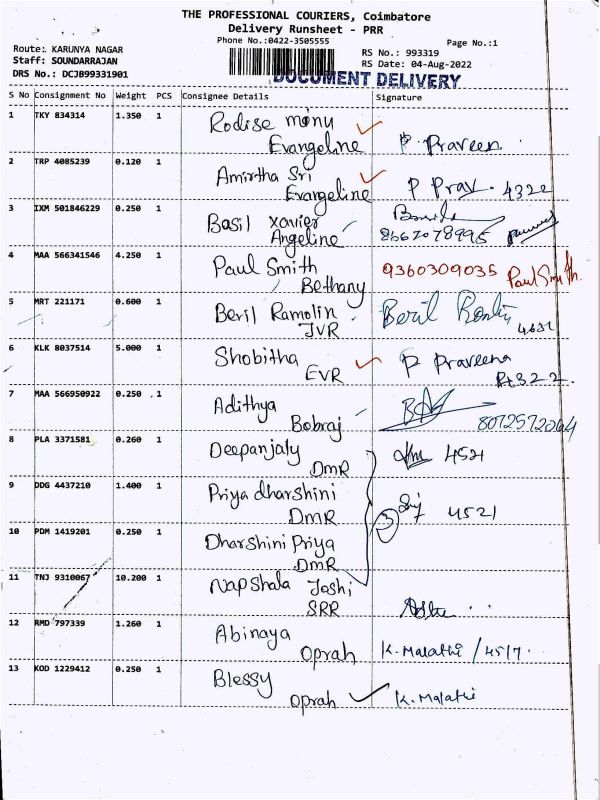 THE PROFESSIONAL COURIERS, Coimbatore
Delivery Runsheet - PRR
Phone No.:0422-3505555
Page No.:1
Route: KARUNYA NAGAR
Staff: SOUNDARRAJAN
DRS No.: DCJB99331901
RS No.: 993319
RS Date: 04-Aug-2022
DOCUMENT DELIVERY
S No Consignment No Weight PCS Consignee Details Signature
1 TKY 834314 1.350 1 Rodise monu
Evangeline P. Praveen
2 TRP 4085239 0.120 1 Amirtha Sri
Evangeline P Prav. 4322
3 IXM 501846229 0.250 1 Basil Xavier
Angeline 8667078995
4 MAA 566341546 4.250 1 Paul Smith 9360309035 Paul Smith.
Bethany
5 MRT 221171 0.600 1 Beril Ramolin Beril
JVR 4632
6 KLK 8037514 5.000 1 Shobitha P Praveena
EVR
7 MAA 566950922 0.250 1 Adithya
Bobraj 8072572064
8 PLA 3371581 0.260 1 Deepanjaly 4521
DMR
9 DDG 4437210 1.400 1 Priya dharshini
DMR 4521
10 PDM 1419201 0.250 1 Dharshini Priya
DMR
11 TNJ 9310067 10.200 1 Napshala Joshi
SRR
12 RMD 797339 1.260 1 Abinaya
Oprah K. Malathi / 4517.
13 KOD 1229412 0.250 1 Blessy
Oprah K. Malathi